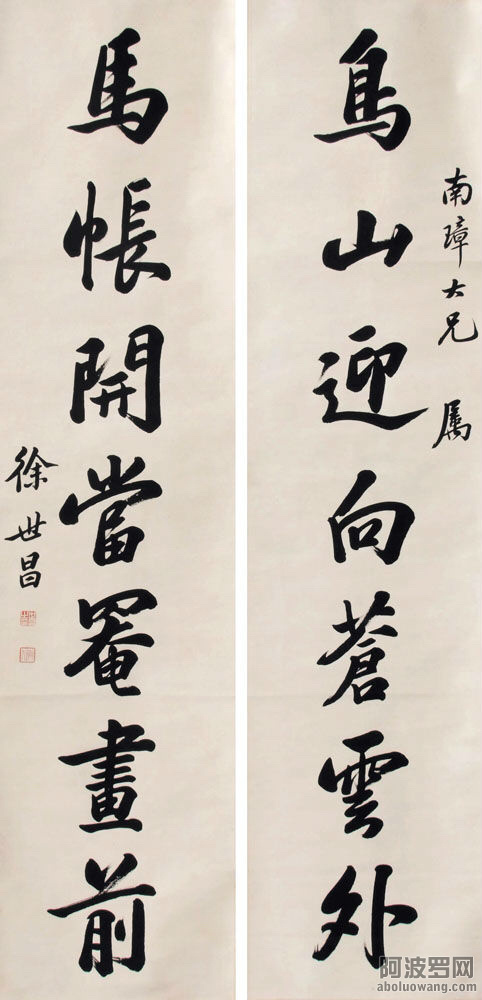 南璋大兄 属
山迎向蒼雲外
馬帳開當罨畫前
徐世昌
阿波罗网
aboluowang.com